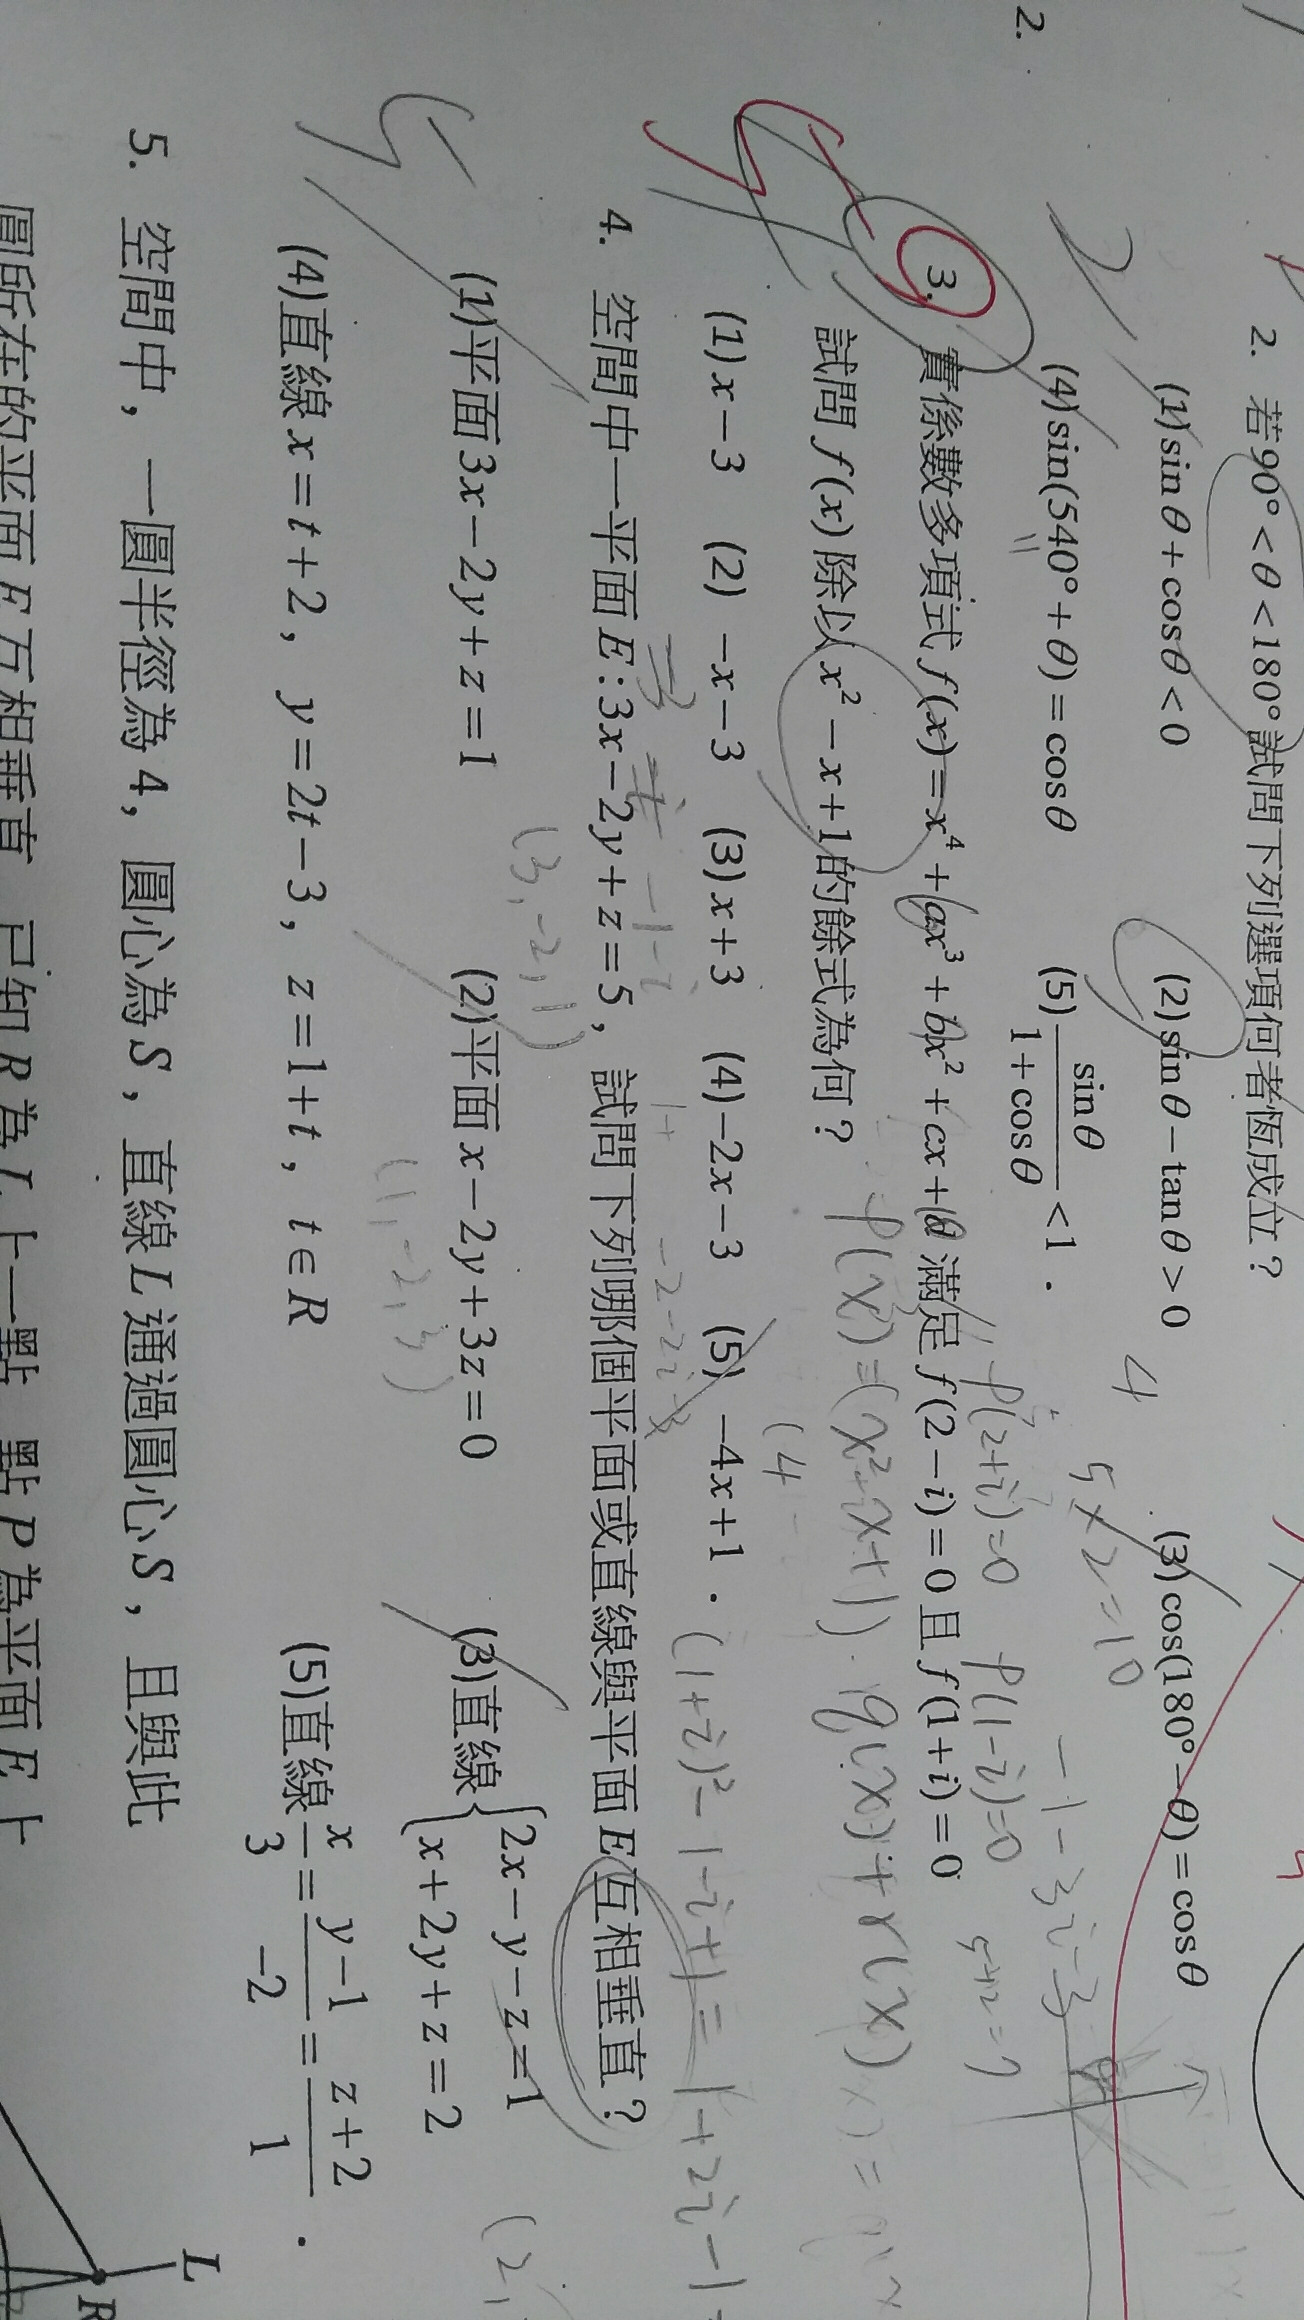 2.
2. 若90°<θ<180°試問下列選項何者恆成立?
(1)sinθ+cosθ<0 (2)sinθ−tanθ>0 (3)cos(180°−θ)=cosθ
(4)sin(540°+θ)=cosθ (5) sinθ/(1+cosθ) <1.
4
5×2=10
-1-3i-3
f(2+i)=0 f(1-i)=0
5+2=7
3. 實係數多項式f(x)=x⁴+ax³+bx²+cx+d滿足f(2−i)=0且f(1+i)=0
試問f(x)除以x²−x+1的餘式為何?
(1)x−3 (2)−x−3 (3)x+3 (4)−2x−3 (5)−4x+1.
(4-
4. 空間中一平面E:3x−2y+z=5,試問下列哪個平面或直線與平面E互相垂直?
(3,-2,1)
(1)平面3x−2y+z=1 (2)平面x−2y+3z=0 (3)直線{2x−y−z=1
x+2y+z=2
(1,-2,3)
(4)直線x=t+2, y=2t−3, z=1+t, t∈R (5)直線 x/3 = (y−1)/−2 = (z+2)/1 .
5. 空間中,一圓半徑為4,圓心為S,直線L通過圓心S,且與此
圓所在的平面E互相垂直 已知R為L上一點 點P為平面E上
L
R